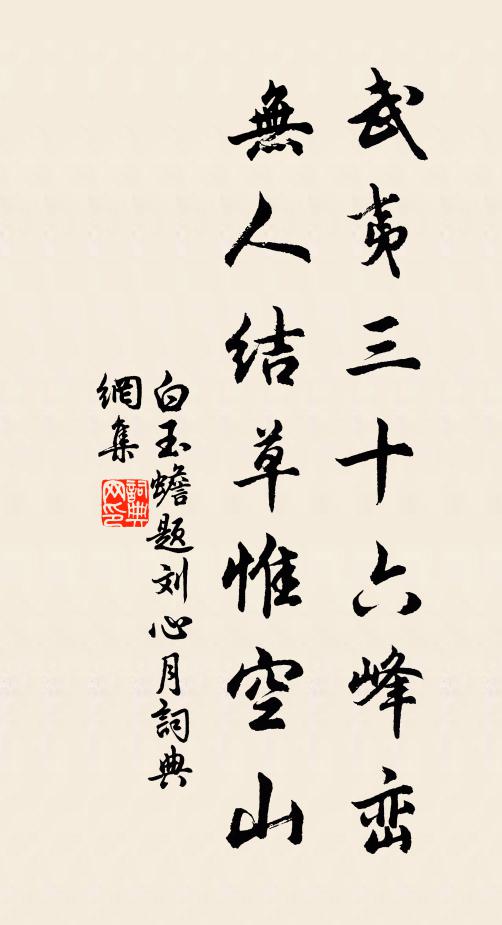 武夷三十六峰峦
無人结草惟空山
白玉蟾题刘心月詞典
網集
詞典
网印